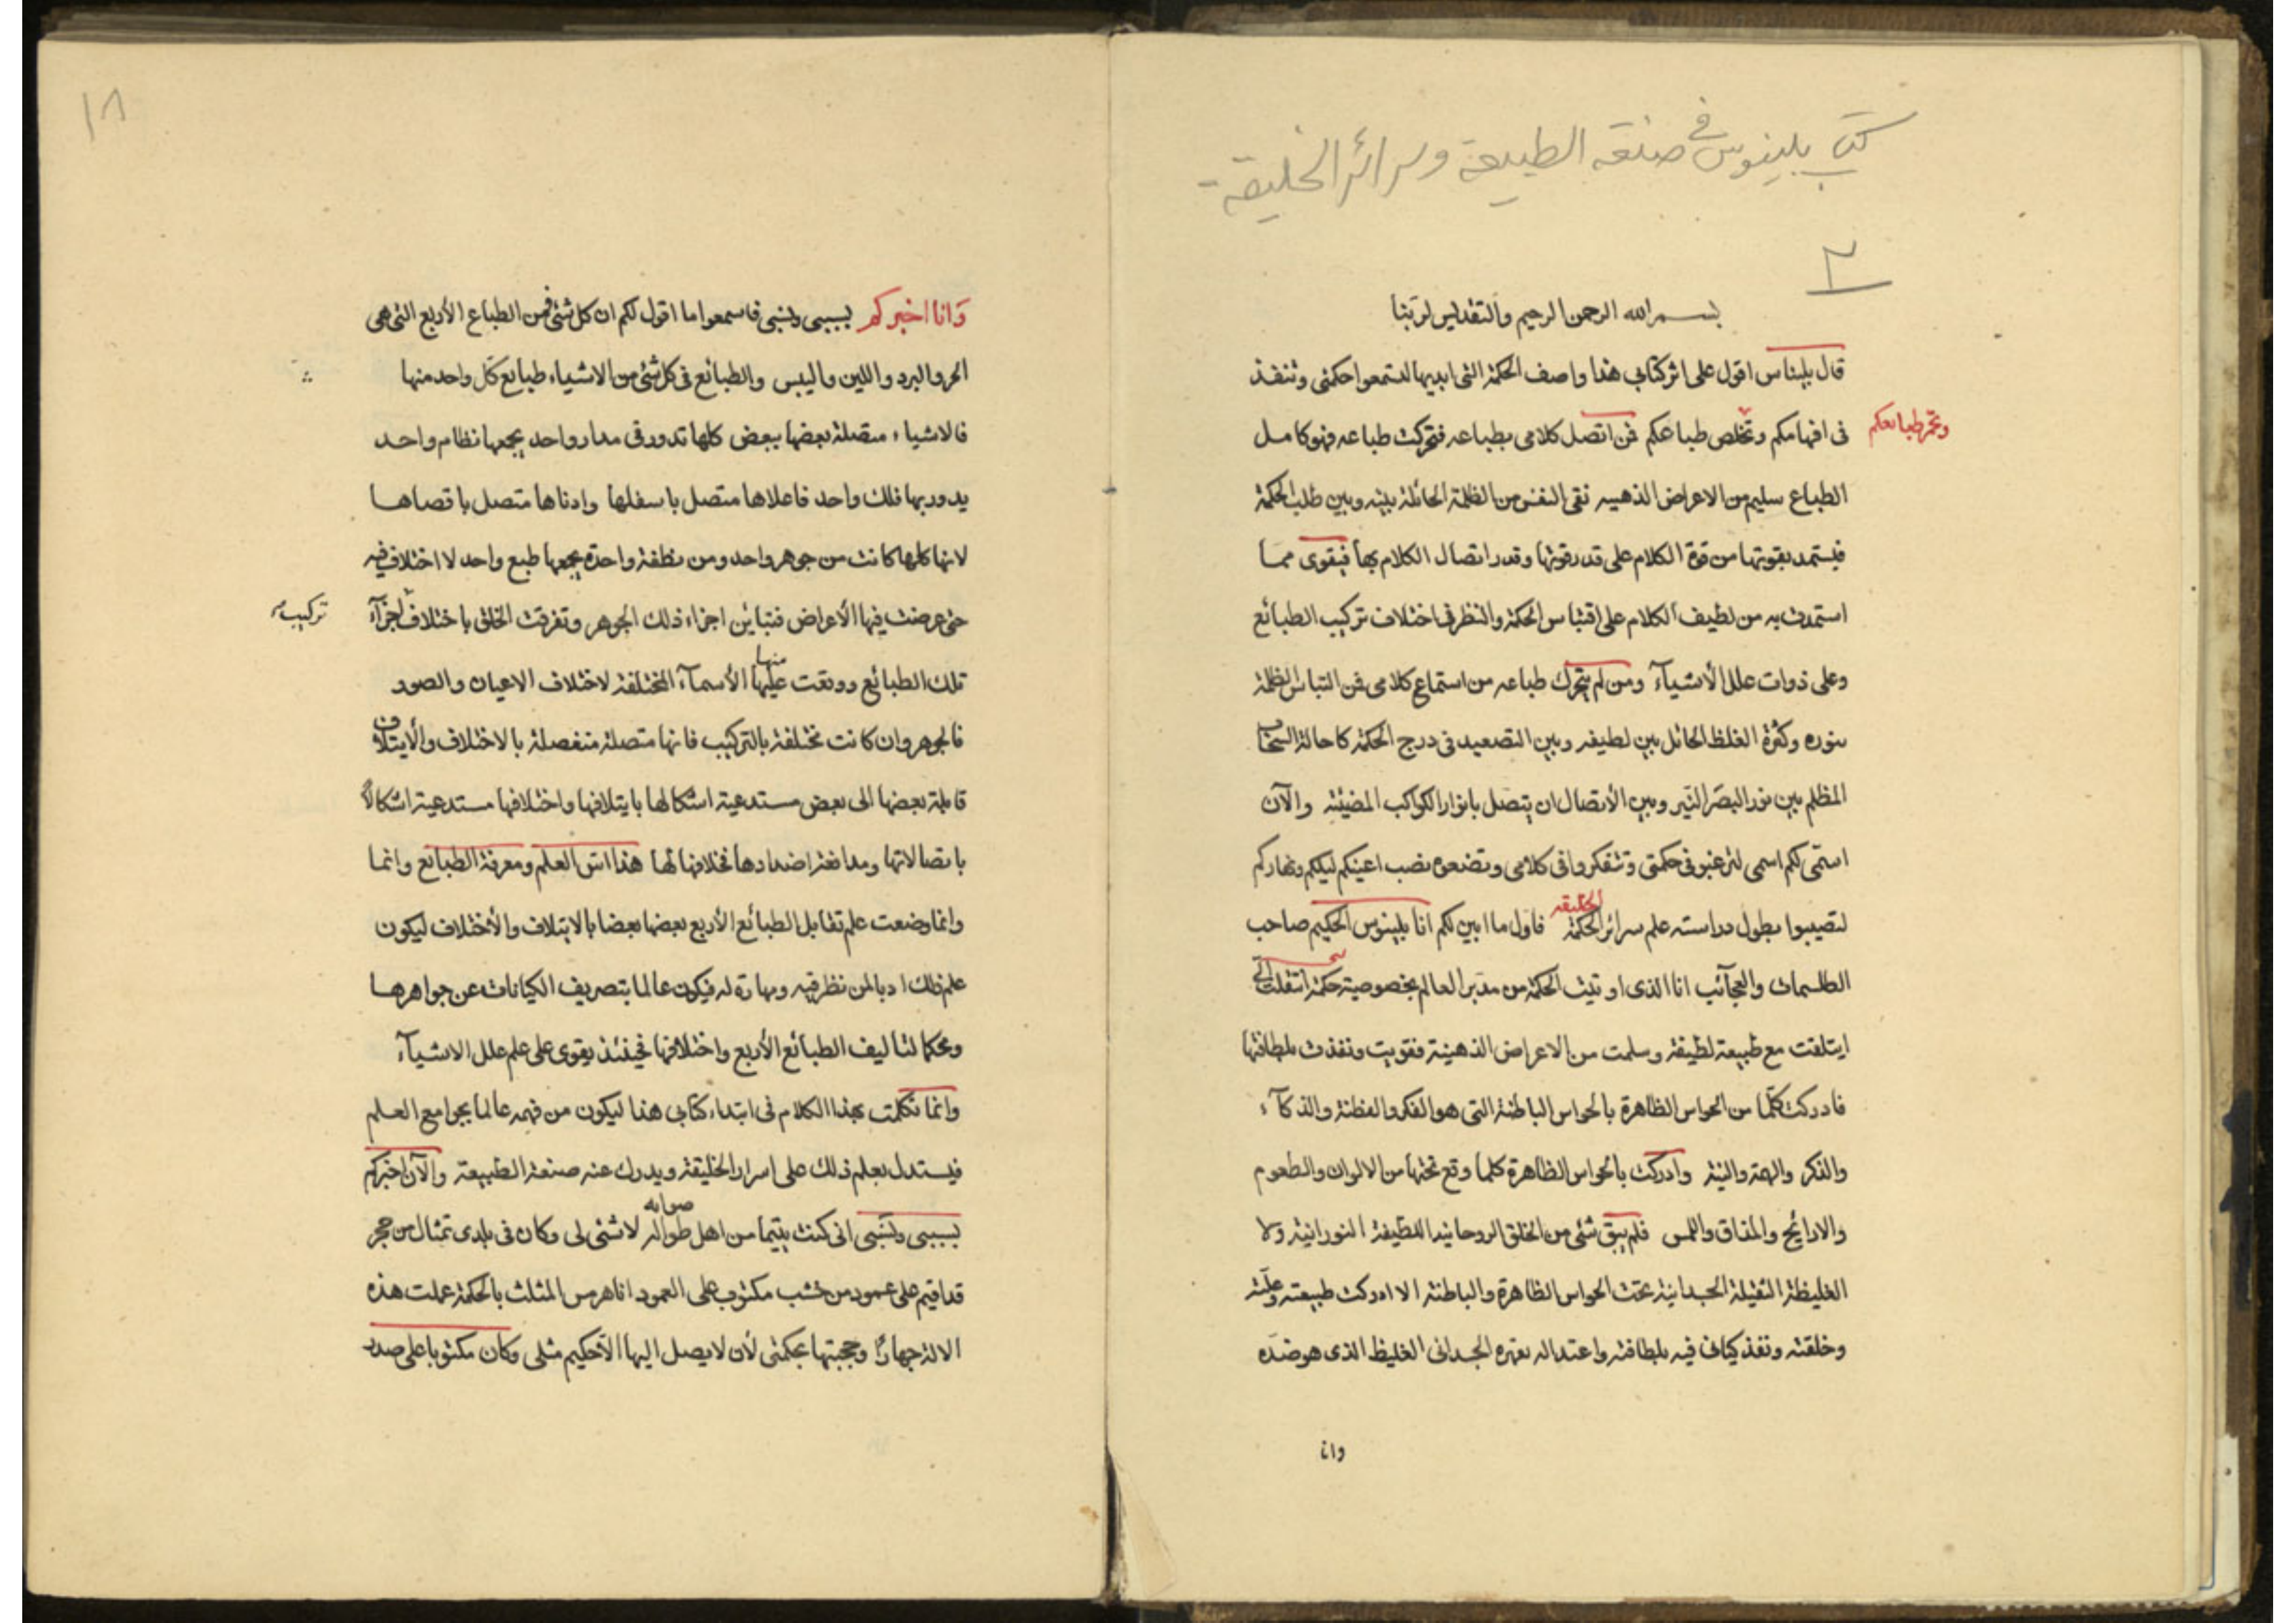 كتاب بلينوس في صنعة الطبيعة وسرائر الخليقة
٣
بسم الله الرحمن الرحيم والتقديس لربنا
قال بليناس اقول على اثر كتابي هذا واصف الحكمة التي ابديها لتستمعوا حكمتي وتنفذ
في افهامكم وتخلص طباعكم فمن اتصل كلامي بطباعه فتحركت طباعه فهو كامل
وتحر طبائعكم
الطباع سليم من الاعراض الذهبيه نقي النفس من الظلمة الحائلة بينه وبين طلب الحكمة
فيستمد بقوتها من قوة الكلام على قدر قوتها وقدر اتصال الكلام بها فيقوى مما
استمدت به من لطيف الكلام على اقتباس الحكمة والنظر في اختلاف تركيب الطبائع
وعلى ذوات علل الأشيآء ومن لم يتحرك طباعه من استماع كلامي فمن التباس الظلمة
بنوره وكثرة الغلظ الحائل بين لطيفه وبين التصعيد في درج الحكمة كاحالة السحاب
المظلم بين نور البصر النير وبين الأتصال ان يتصل بانوار الكواكب المضيئة والآن
اسمي لكم اسمي لترغبو في حكمتي وتتفكروا في كلامي وتضعوه نصب اعينكم ليلكم ونهاركم
لتصيبوا بطول دراسته علم سرائر الحكمة فاول ما ابين لكم انا بلينوس الحكيم صاحب
الخليقه
الطلسمات والعجآئب انا الذي اوتيت الحكمة من مدبر العالم بخصوصية حكمة
ايتلفت مع طبيعة لطيفة وسلمت من الاعراض الذهنية فقويت ونفذت بلطافتها
فادركت كلما من الحواس الظاهرة بالحواس الباطنة التي هو الفكر والفطنة والذكآء
والفكر والهمة والنية وادركت بالحواس الظاهرة كلما وقع تحتها من الالوان والطعوم
والارايح والمذاق واللمس فلم يبق شئ من الخلق الروحانية اللطيفة النورانية ولا
الغليظة الثقيلة الجسدانية تحت الحواس الظاهرة والباطنة الا ادركت طبيعته وعلته
وخلقته ونفذ كيانى فيه بلطافته واعتداله بقهره الجسداني الغليظ الذي هو ضده
وانا
١٨
وانا اخبركم بسببي ونسبي فاسمعوا ما اقول لكم ان كل شئ فمن الطباع الأربع التي هي
الحر والبرد واللين واليبس والطبائع في كل شئ من الاشياء طبايع كل واحد منها
فالاشياء متصلة بعضها ببعض كلها تدور في مدار واحد يجمعها نظام واحد
يدور بها فلك واحد فاعلاها متصل باسفلها وادناها متصل باقصاها
لانها كلها كانت من جوهر واحد ومن نطفة واحدة يجمعها طبع واحد لا اختلاف فيه
حتى عرضت فيها الأعراض فتباين اجزاء ذلك الجوهر وتفرقت الخلق باختلاف اجزآء
تركيب
تلك الطبائع ووقعت عليها الأسمآء المختلفة لاختلاف الاعيان والصور
منها
فالجوهر وان كانت مختلفة بالتركيب فانها متصلة منفصلة بالاختلاف والأيتلاف
قابلة بعضها الى بعض مستدعية اشكالها بايتلافها واختلافها مستدعية اشكالا
باتصالاتها ومدافعة اضدادها بخلافها لها هذا اس العلم ومعرفة الطبائع وانما
وانما وضعت علم تقابل الطبائع الأربع بعضها بعضا بالايتلاف والأختلاف ليكون
علم ذلك ادبا لمن نظر فيه ومهارة له فيكون عالما بتصريف الكيانات عن جواهرها
ومحكما لتاليف الطبائع الأربع واختلافها فحينئذ يقوى على علم علل الاشيآء
وانما تكلمت بهذا الكلام في ابتداء كتابي هذا ليكون من فهمه عالما بجوامع العلم
فيستدل بعلم ذلك على اسرار الخليقة ويدرك عنه صنعة الطبيعة والآن اخبركم
بسببي ونسبي اني كنت يتيما من اهل طواله لا شئ لي وكان في بلدي تمثال من حجر
صوابه
قد اقيم على عمود من خشب مكتوب على العمود انا هرمس المثلث بالحكمة عملت هذه
الالة جهارًا وحجبتها بحكمتي لأن لا يصل اليها الا حكيم مثلي وكان مكتوبا على صدر